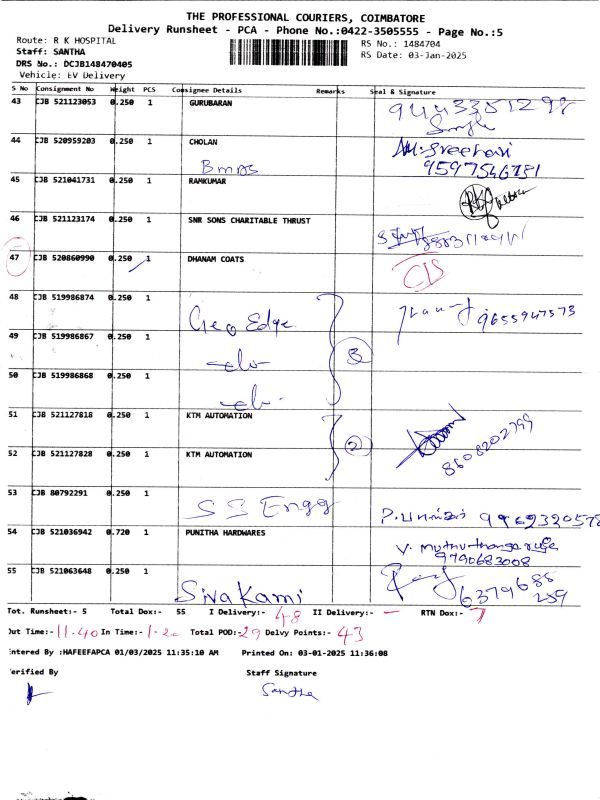 THE PROFESSIONAL COURIERS, COIMBATORE
Delivery Runsheet - PCA - Phone No.:0422-3505555 - Page No.:5
Route: R K HOSPITAL
Staff: SANTHA
DRS No.: DCJB148470405
Vehicle: EV Delivery
RS No.: 1484704
RS Date: 03-Jan-2025
S No Consignment No Weight PCS Consignee Details Remarks Seal & Signature
43 CJB 521123053 0.250 1 GURUBARAN 9443351298
44 CJB 520959203 0.250 1 CHOLAN
BMAS 9597546781
45 CJB 521041731 0.250 1 RAMKUMAR
46 CJB 521123174 0.250 1 SNR SONS CHARITABLE THRUST
47 CJB 520860990 0.250 1 DHANAM COATS C/S
48 CJB 519986874 0.250 1 Geo Edge 9655947573
49 CJB 519986867 0.250 1 -do- 3
50 CJB 519986868 0.250 1 -do-
51 CJB 521127818 0.250 1 KTM AUTOMATION
52 CJB 521127828 0.250 1 KTM AUTOMATION 2 8608202799
53 CJB 80792291 0.250 1 SS Engg 9969320578
54 CJB 521036942 0.720 1 PUNITHA HARDWARES
9790683008
55 CJB 521063648 0.250 1 Sivakami 6379688
259
Tot. Runsheet:- 5 Total Dox:- 55 I Delivery:- 48 II Delivery:- - RTN Dox:- 7
Out Time:- 11.40 In Time:- 1-20 Total POD:- 29 Delvy Points:- 43
Entered By :HAFEEFAPCA 01/03/2025 11:35:10 AM Printed On: 03-01-2025 11:36:08
Verified By Staff Signature
Santha